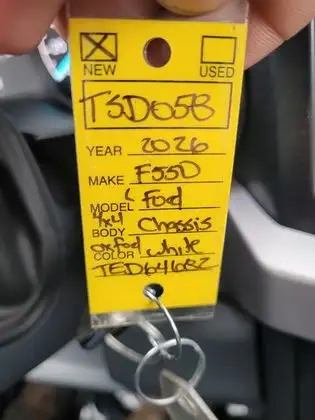 NEW USED
TSD058
YEAR 2026
MAKE F550
MODEL Ford
4x4
BODY Chassis
oxford white
COLOR
TED64682